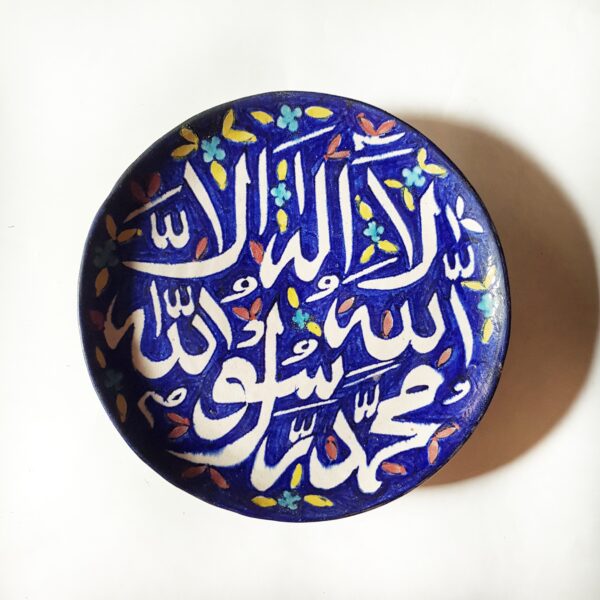 لا اله الا
الله
محمد رسول الله